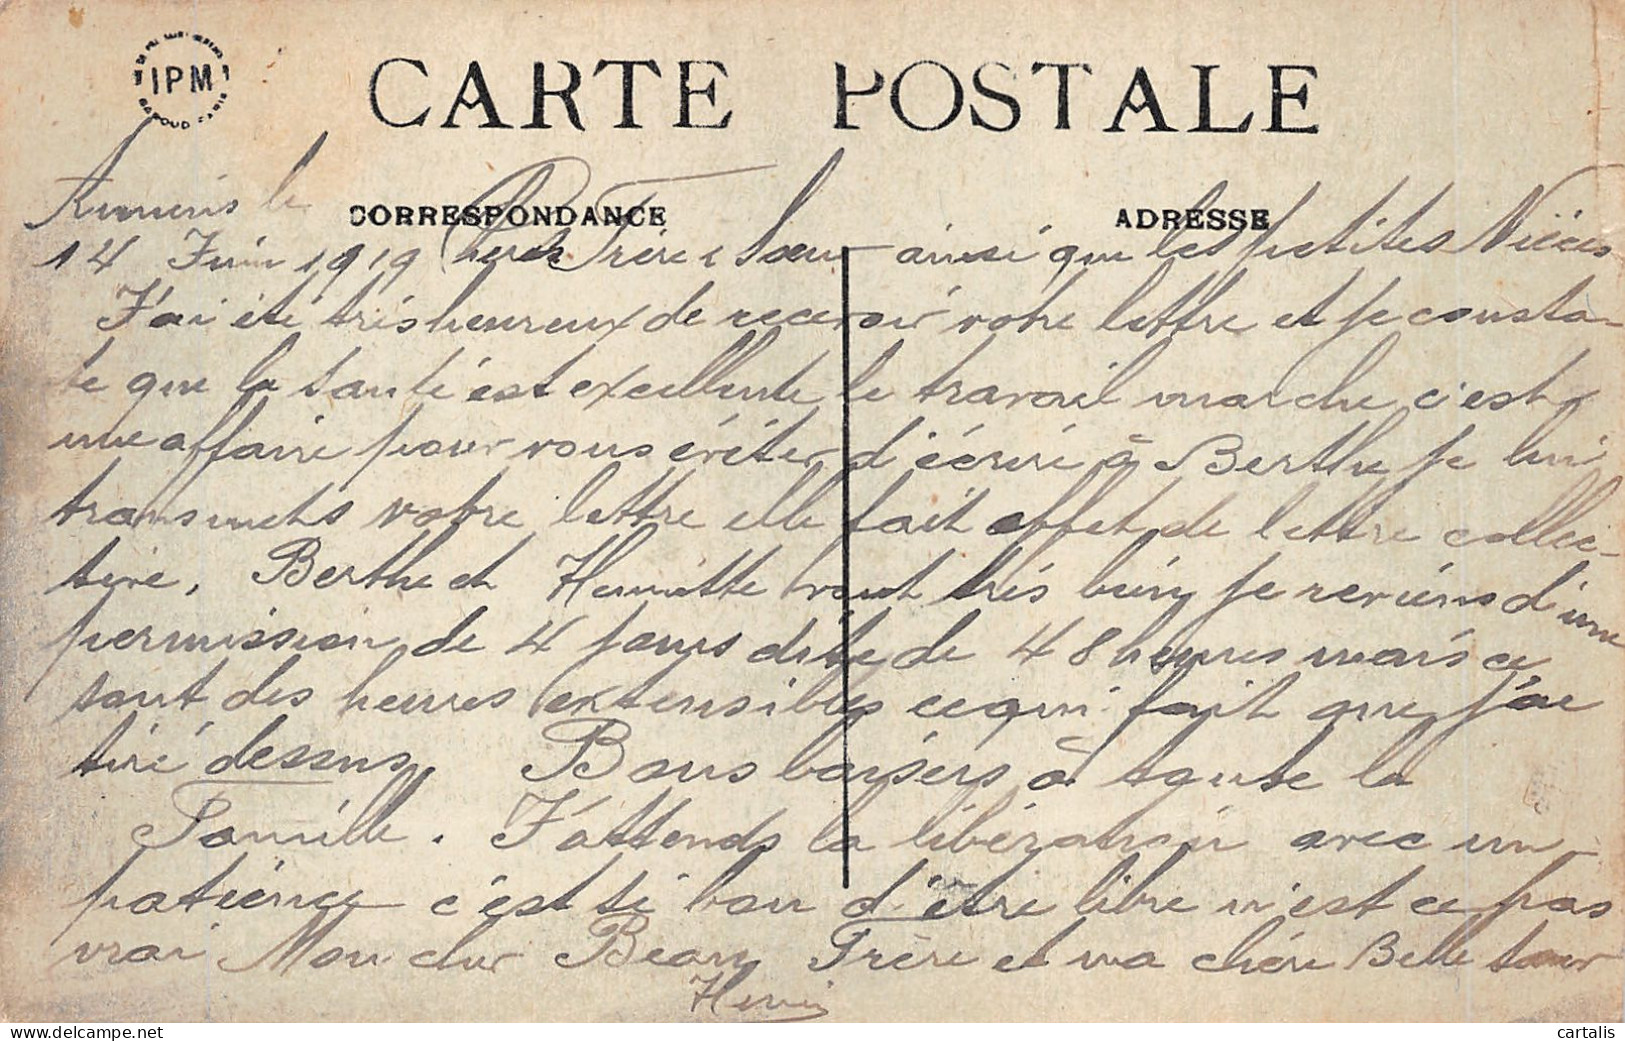 IPM
CARTE POSTALE
CORRESPONDANCE
ADRESSE
Amiens le
14 Juin 1919 Chers Frère & Sœur ainsi que les petites Nièces
J'ai été très heureux de recevoir votre lettre et je consta-
te que la santé est excellente le travail marche c'est
une affaire pour vous éviter d'écrire à Berthe je lui
transmets votre lettre elle fait effet de lettre collec-
tive. Berthe et Henriette vont très bien je reviens d'une
permission de 4 jours dite de 48 heures mais ce
sont des heures extensibles ce qui fait que j'ai
tiré dessus. Bons baisers à toute la
Famille. J'attends la libération avec im-
patience c'est si bon d'être libre n'est ce pas
vrai Mon cher Beau Frère et ma chère Belle sœur
Henri
cartalis